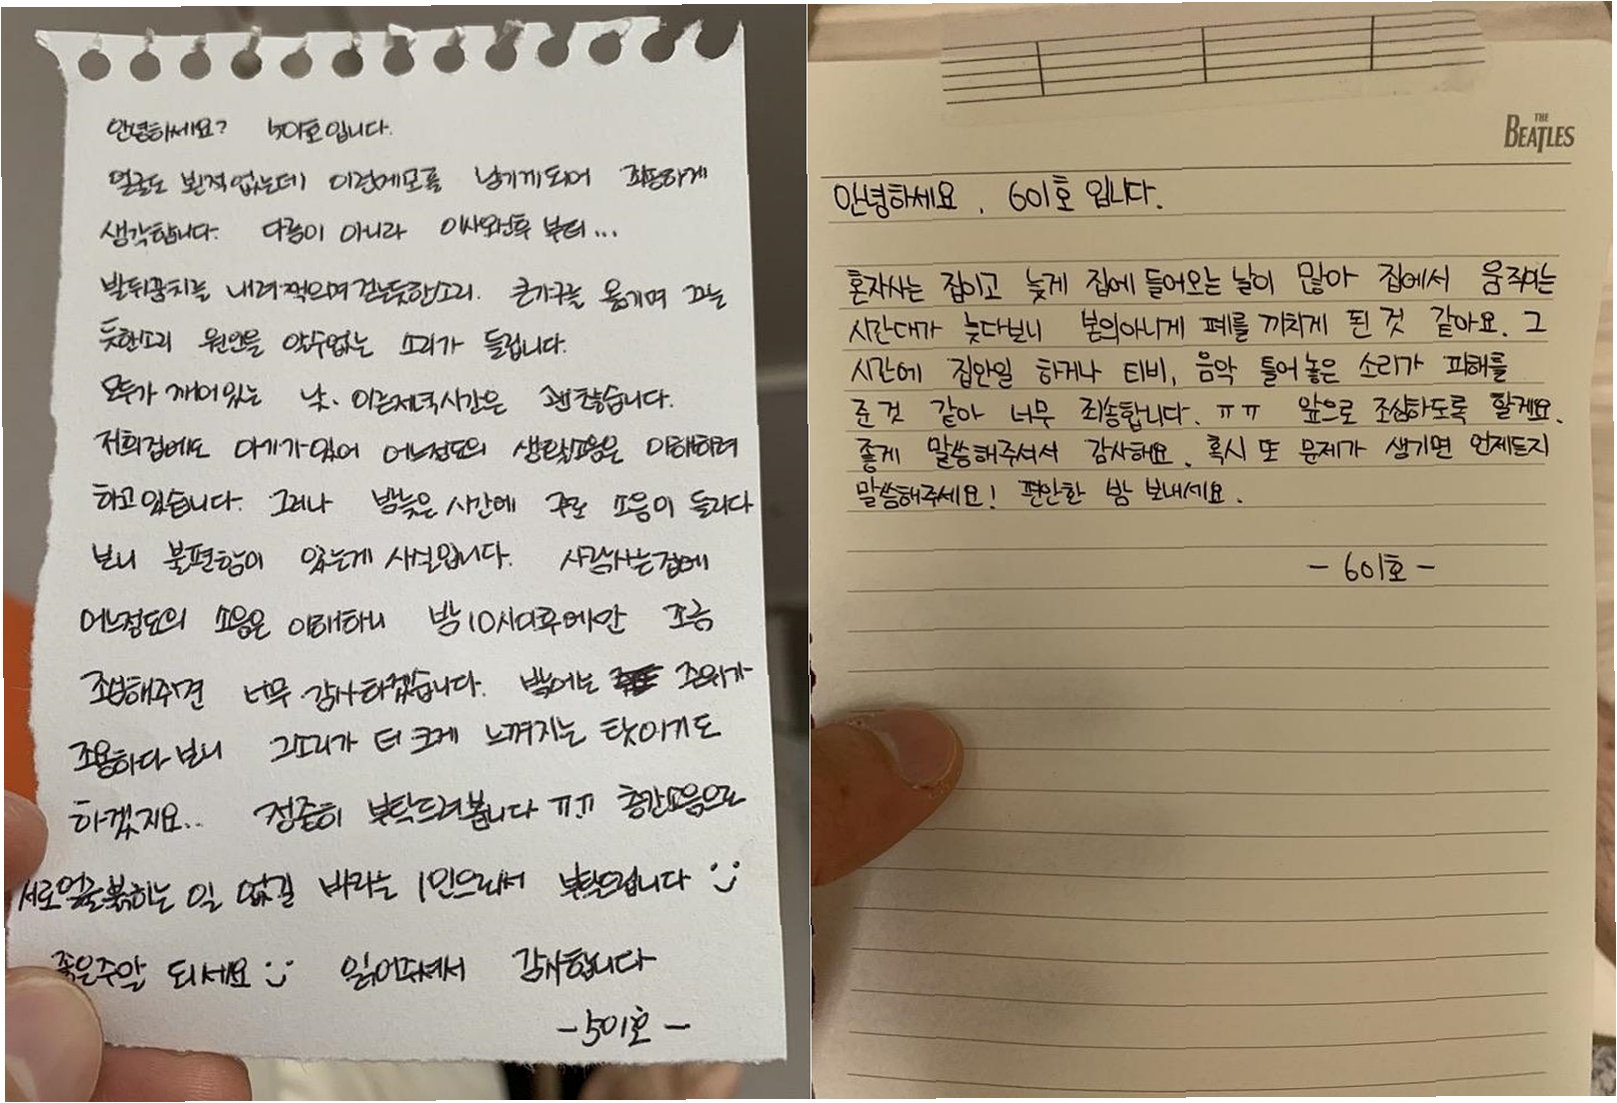 안녕하세요? 501호입니다.
얼굴도 뵌적없는데 이런메모를 남기게되어 죄송하게
생각합니다. 다름이 아니라 이사오신후 부터...
발뒤꿈치를 내려찍으며걷는듯한소리. 큰가구를 옮기며 끄는
듯한소리 원인을 알수없는 소리가 들립니다.
모두가 깨어있는 낮. 이른저녁시간은 괜찮습니다.
저희집에도 아기가있어 어느정도의 생활소음은 이해하려
하고있습니다. 그러나 밤늦은시간에 주로 소음이 들리다
보니 불편함이 있는게 사실입니다. 사람사는집에
어느정도의 소음은 이해하니 밤10시이후에만 조금
조심해주면 너무 감사하겠습니다. 밤에는 주위가
조용하다보니 그소리가 더 크게 느껴지는 탓이기도
하겠지요.. 정중히 부탁드려봅니다 ㅠ.ㅠ 층간소음으로
서로얼굴붉히는 일 없길 바라는 1인으로써 부탁드립니다 :)
좋은주말 되세요 :) 읽어주셔서 감사합니다
-501호-
THE
BEATLES
안녕하세요. 601호 입니다.
혼자사는 집이고 늦게 집에 들어오는 날이 많아 집에서 움직이는
시간대가 늦다보니 본의아니게 폐를 끼치게 된 것 같아요. 그
시간에 집안일 하거나 티비, 음악 틀어놓은 소리가 피해를
준 것 같아 너무 죄송합니다. ㅠㅠ 앞으로 조심하도록 할게요.
좋게 말씀해주셔서 감사해요. 혹시 또 문제가 생기면 언제든지
말씀해주세요! 편안한 밤 보내세요.
-601호-